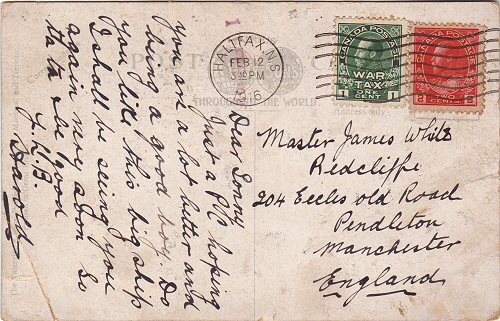 HALIFAX, N.S.
FEB 12
3 30 PM
1916
CANADA POSTAGE
WAR
TAX
ONE
CENT
1 1
CANADA POSTAGE
2 CENTS 2
POST
THROUGHOUT THE WORLD
Address only
Dear Sonny
Just a PC hoping
you are a lot better and
being a good boy. Do
you like this big ship
I shall be seeing you
again very soon so
ta ta be good
Y.L.B.
Harold
Master James White
Redcliffe
204 Eccles old Road
Pendleton
Manchester
England